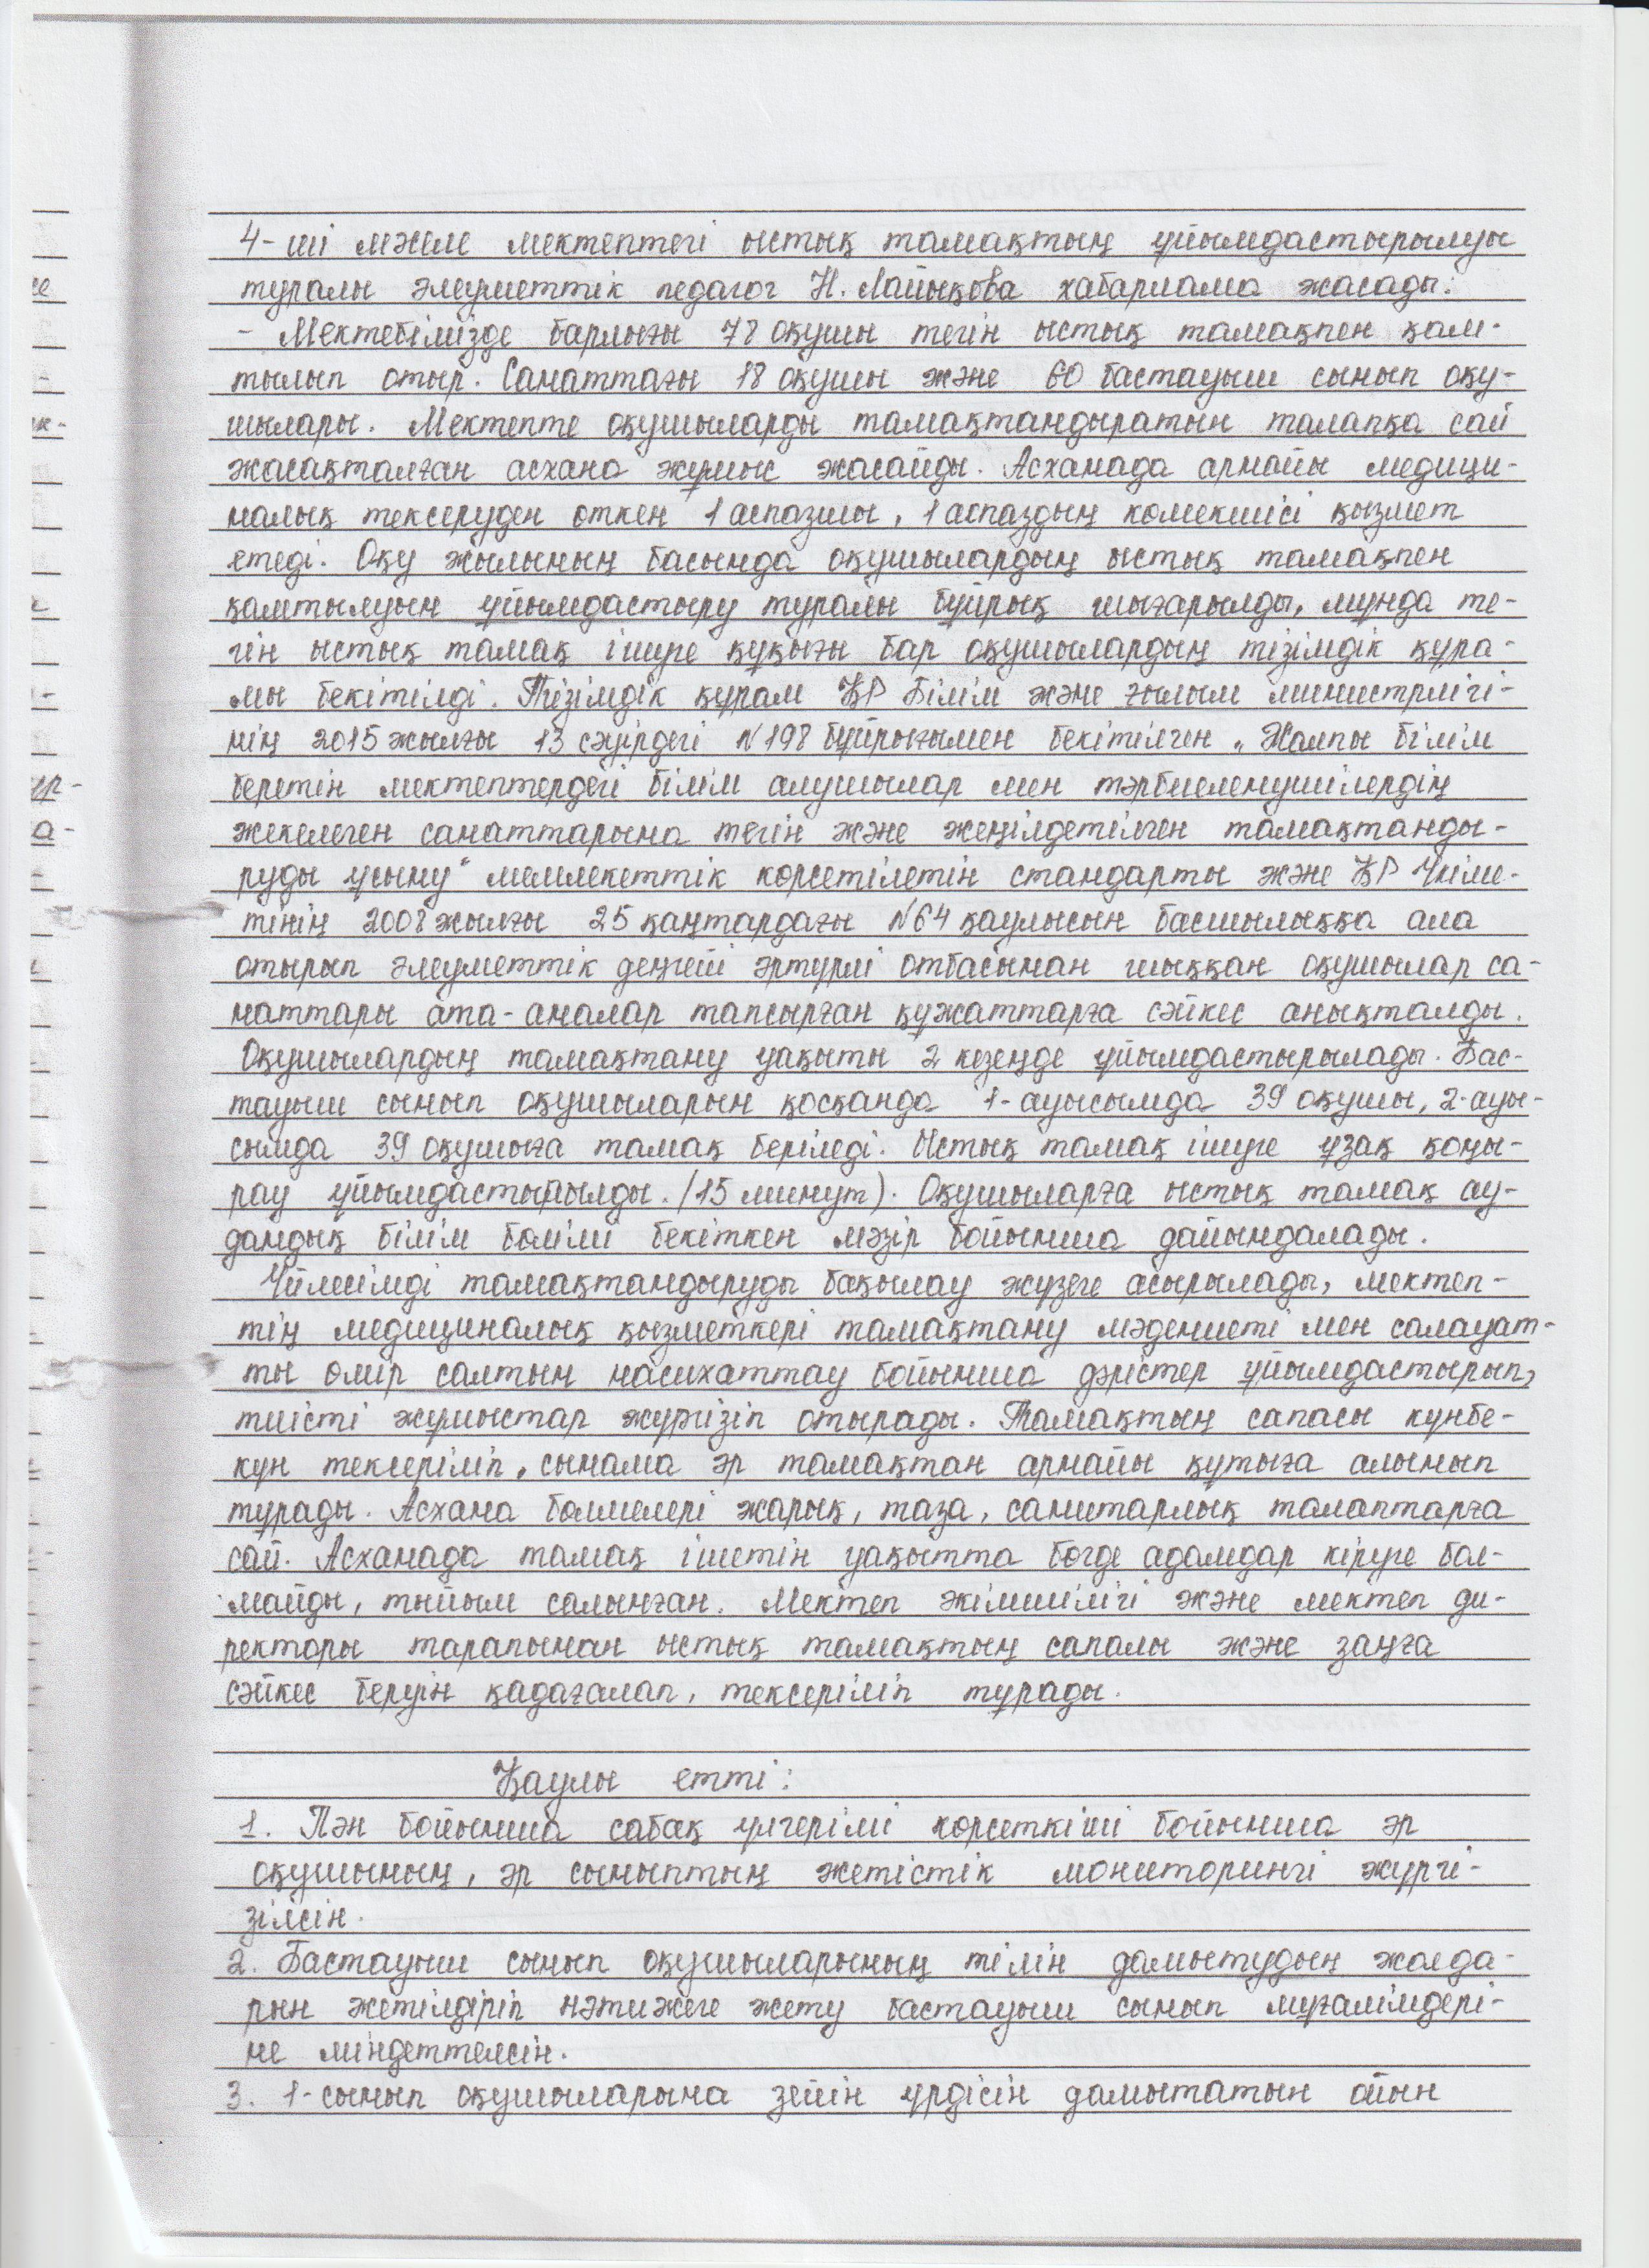 4-ші мәселе мектептегі ыстық тамақтың ұйымдастырылуы
туралы әлеуметтік педагог Н. Лайықова хабарлама жасады:
- Мектебімізде барлығы 78 оқушы тегін ыстық тамақпен қам-
тылып отыр. Санаттағы 18 оқушы және 60 бастауыш сынып оқу-
шылары. Мектепте оқушыларды тамақтандыратын талапқа сай
жасақталған асхана жұмыс жасайды. Асханада арнайы медици-
налық тексеруден өткен 1 аспазшы, 1 аспаздың көмекшісі қызмет
етеді. Оқу жылының басында оқушылардың ыстық тамақпен
қамтылуын ұйымдастыру туралы бұйрық шығарылды, мұнда те-
гін ыстық тамақ ішуге құқығы бар оқушылардың тізімдік құра-
мы бекітілді. Тізімдік құрам ҚР Білім және ғылым министрлігі-
нің 2015 жылғы 13 сәуірдегі №198 бұйрығымен бекітілген „Жалпы білім
беретін мектептердегі білім алушылар мен тәрбиеленушілердің
жекелеген санаттарына тегін және жеңілдетілген тамақтанды-
руды ұсыну" мемлекеттік көрсетілетін стандарты және ҚР Үкіме-
тінің 2008 жылғы 25 қаңтардағы №64 қаулысын басшылыққа ала
отырып әлеуметтік деңгейі әртүрлі отбасынан шыққан оқушылар са-
наттары ата-аналар тапсырған құжаттарға сәйкес анықталды.
Оқушылардың тамақтану уақыты 2 кезеңде ұйымдастырылады. Бас-
тауыш сынып оқушыларын қосқанда 1-ауысымда 39 оқушы, 2-ауы-
сымда 39 оқушыға тамақ беріледі. Ыстық тамақ ішуге ұзақ қоңы-
рау ұйымдастырылды. /15 минут). Оқушыларға ыстық тамақ ау-
дандық білім бөлімі бекіткен мәзір бойынша дайындалады.
Үйлесімді тамақтандыруды бақылау жүзеге асырылады, мектеп-
тің медициналық қызметкері тамақтану мәдениеті мен салауат-
ты өмір салтын насихаттау бойынша дәрістер ұйымдастырып,
тиісті жұмыстар жүргізіп отырады. Тамақтың сапасы күнбе-
күн тексеріліп, сынама әр тамақтан арнайы құтыға алынып
тұрады. Асхана бөлмелері жарық, таза, санитарлық талаптарға
сай. Асханада тамақ ішетін уақытта бөгде адамдар кіруге бол-
майды, тыйым салынған. Мектеп әкімшілігі және мектеп ди-
ректоры тарапынан ыстық тамақтың сапалы және заңға
сәйкес беруін қадағалап, тексеріліп тұрады.
Қаулы етті:
1. Пән бойынша сабақ үлгерімі көрсеткіші бойынша әр
оқушының, әр сыныптың жетістік мониторингі жүргі-
зілсін.
2. Бастауыш сынып оқушыларының тілін дамытудың жолда-
рын жетілдіріп нәтижеге жету бастауыш сынып мұғалімдері-
не міндеттелсін.
3. 1-сынып оқушыларына зейін үрдісін дамытатын ойын